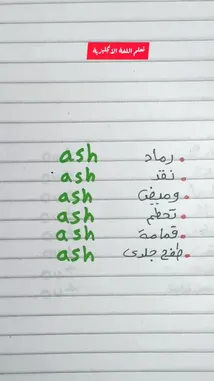 تعلم اللغة الانجليزية
رماد ash
نقد ash
وميض ash
تحطم ash
قمامة ash
طفح جلدى ash